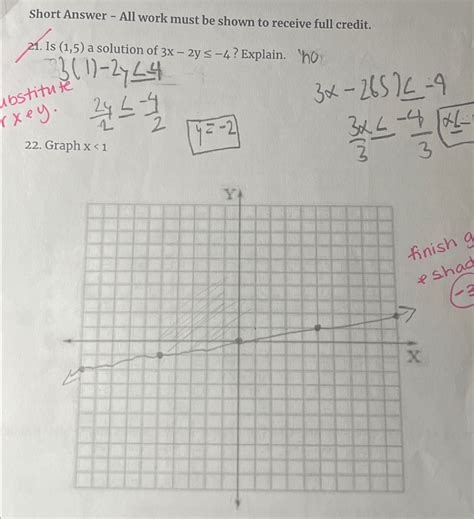 Short Answer – All work must be shown to receive full credit.
21. Is (1,5) a solution of 3x – 2y ≤ –4? Explain. no
3(1)-2y≤4
ubstitute
r x e y.
2y/2 ≤ -4/2
y = -2
3x - 2(5) ≤ -4
3x/3 ≤ -4/3
x≤-
22. Graph x < 1
Y
finish g
& shad
-3
X